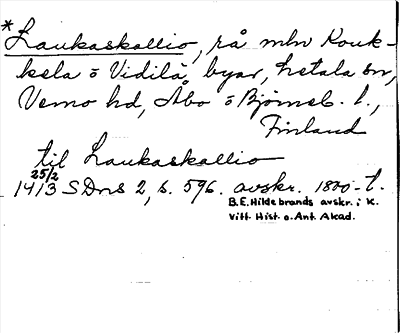 *Laukaskallio, rå mln Kouk-
kela o Vidilä byar, Letala sn,
Vemo hd, Åbo o Björneb. l.,
Finland
til Laukaskallio
25/2
1413 SDns 2, s. 596. avskr. 1800-t.
B.E. Hildebrands avskr. i K.
Vitt. Hist. o. Ant. Akad.